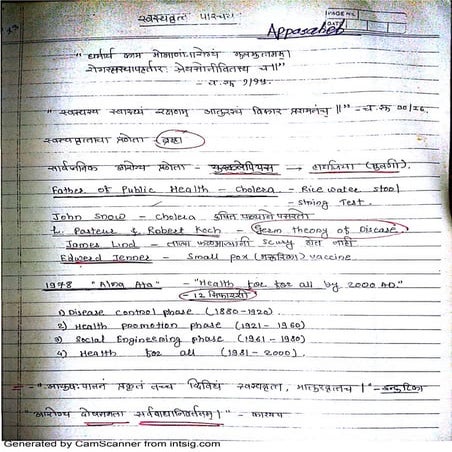 स्वस्थवृत्त परिचय
PAGE NO.
DATE
Appasaheb
"धर्मार्थ काम मोक्षाणां आरोग्यं मूलमुत्तमम्।
रोगास्तस्यापहर्तारः श्रेयसो जीवितस्य च॥"
- च. सू. १/१५
"स्वस्थस्य स्वास्थ्य रक्षणम् आतुरस्य विकार प्रशमनंच॥" - च. सू. 30/26
स्वस्थवृत्ताचा प्रणेता - ब्रह्मा
सार्वजनिक आरोग्य प्रणेता -
Father of Public Health - Cholera - Rice water stool
- String Test.
John Snow - Cholera दूषित पाण्याने पसरतो
L. Pasteur & Robert Koch - Germ theory of Disease.
James Lind - ताज्या फळभाज्यांनी Scurvy होत नाही
Edward Jenner - Small pox (मसूरिका) vaccine
1978 "Alma Ata" - "Health for for all by 2000 AD."
- 12 शिफारशी
1) Disease control phase (1880-1920).
2) Health promotion phase (1921 - 1960)
3) Social Engineering phase (1961 - 1980)
4) Health for all (1981 - 2000).
सर्वबाधानिवर्तनम्।" - काश्यप
Generated by CamScanner from intsig.com